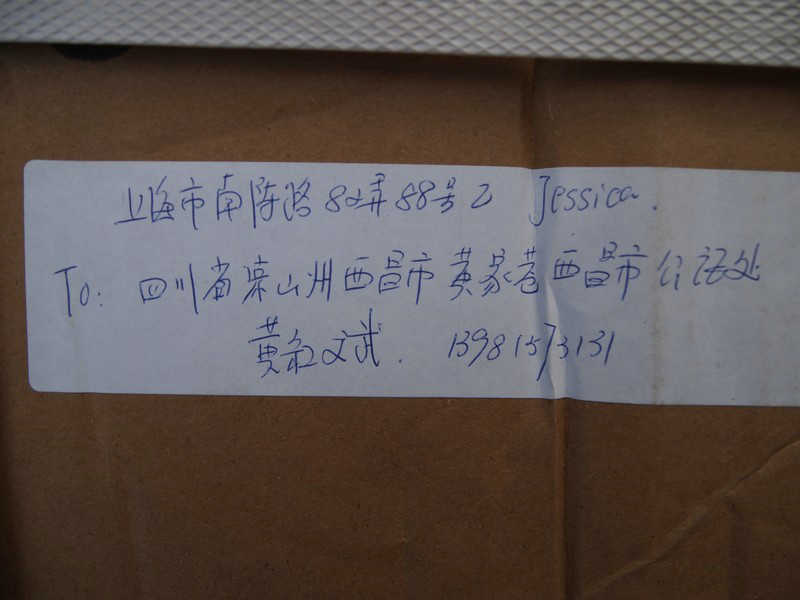 上海市南陈路82弄88号乙 Jessica.
To: 四川省凉山洲西昌市黄家巷西昌市公证处
黄红斌. 13981573131